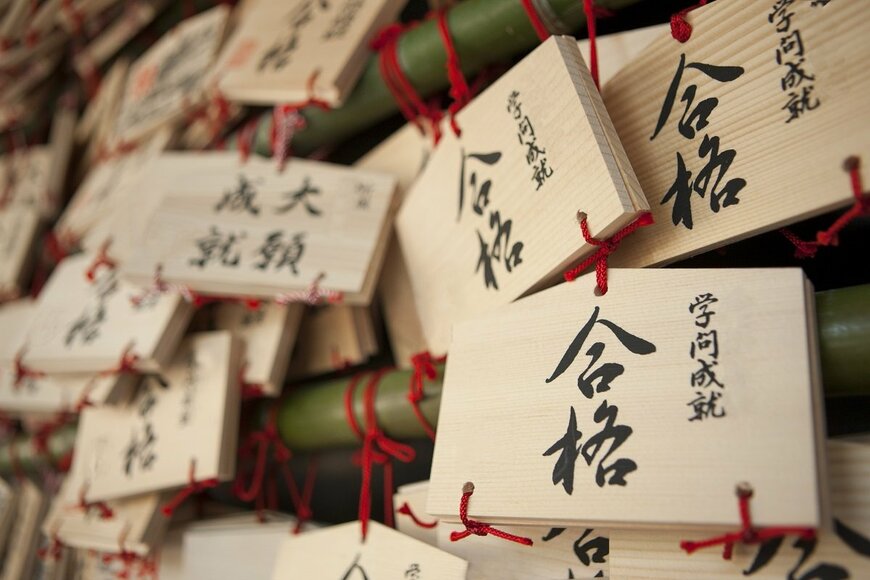 学問成就
合格
学問成就
合格
学問成就
合格
大願
成就
合格
合格